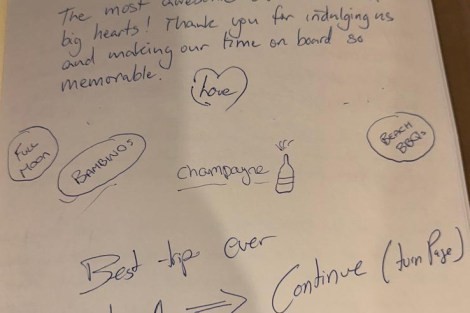 The most awesome
big hearts! Thank you for indulging us
and making our time on board so
memorable.
Love
Full Moon
BAMBINOS
Champagne
BEACH BBQs
Best trip ever
Continue (turn Page)